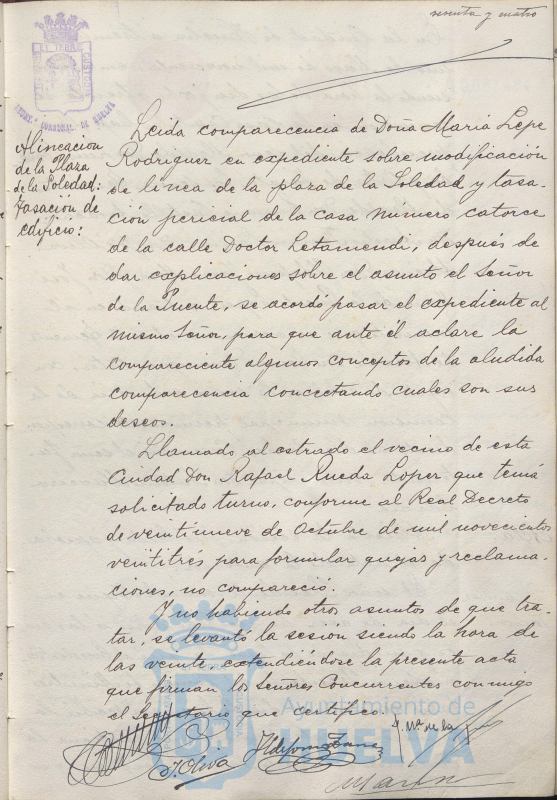 sesenta y cuatro
Alineación
de la Plaza
de la Soledad:
tasación de
edificio:
Leida comparecencia de Doña Maria Lepe
Rodriguez en expediente sobre modificación
de linea de la plaza de la Soledad y tasa-
ción pericial de la casa número catorce
de la calle Doctor Letamendi, después de
dar explicaciones sobre el asunto el Señor
de la Puente, se acordó pasar el expediente al
mismo Señor, para que ante él aclare la
compareciente algunos conceptos de la aludida
comparecencia concectando cuales son sus
deseos.
Llamado al estrado el vecino de esta
Ciudad Don Rafael Rueda Lopez que tenía
solicitado turno, conforme al Real Decreto
de veintinueve de Octubre de mil novecientos
veintitrés para formular quejas y reclama-
ciones, no compareció.
Y no habiendo otros asuntos de que tra-
tar, se levantó la sesión siendo la hora de
las veinte, extendiéndose la presente acta
que firman los Señores Concurrentes conmigo
el Secretario que certifico.
J. Oliva
Mª de la
Ayuntamiento de
HUELVA